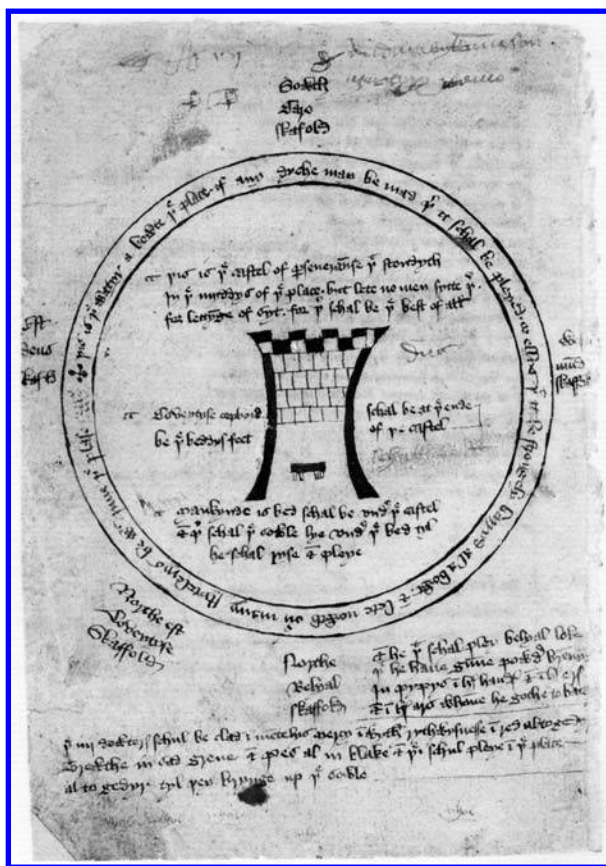 Sowth
Caro
skafold
þis is þe watyr a bowte þe place if any dyche may be mad þer it schal be pleyed or ellys þat it be strongely barryd al a bowt & lete nowth ouer many stytelerys be wit inne þe plase
þis is þe castel of perseueraunse þat stondyth
In þe myddys of þe place but lete no men sytte þer
for lettynge of syt for þer schal be þe best of all
Est
deus
skafold
W
mūd
skaffold
Coveytyse copbord schal be at þe ende
be þe beddys feet of þe castel
Mankynde is bed schal be vndyr þe castel
& þer schal þe sowle lye vndyr þe bed tyl
he schal ryse & pleye
Northe est
Coveytyse
Skaffold
Northe
Belyal
skaffold
& he þat schal pley belyal loke
þat he haue gunne powdyr brennyn
In pypys ī hys hand & ī hys ers
& ī hys ars whane he gothe to bat
þe iiij dowterys schul be clad ī mentelys mercy ī wyth rythwysnesse ī red al togedyr
Trewthe in sad grene & pes al in blake & þei schul pleye ī þe place
al to gedyr tyl þey brynge up þe sowle